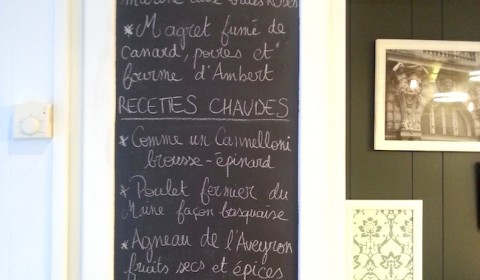 aux baies roses
*Magret fumé de
canard, poires et
fourme d'Ambert
RECETTES CHAUDES
*Comme un Cannelloni
brousse-épinard
*Poulet fermier du
façon basquaise
*Agneau de l'Aveyron
fruits secs et épices